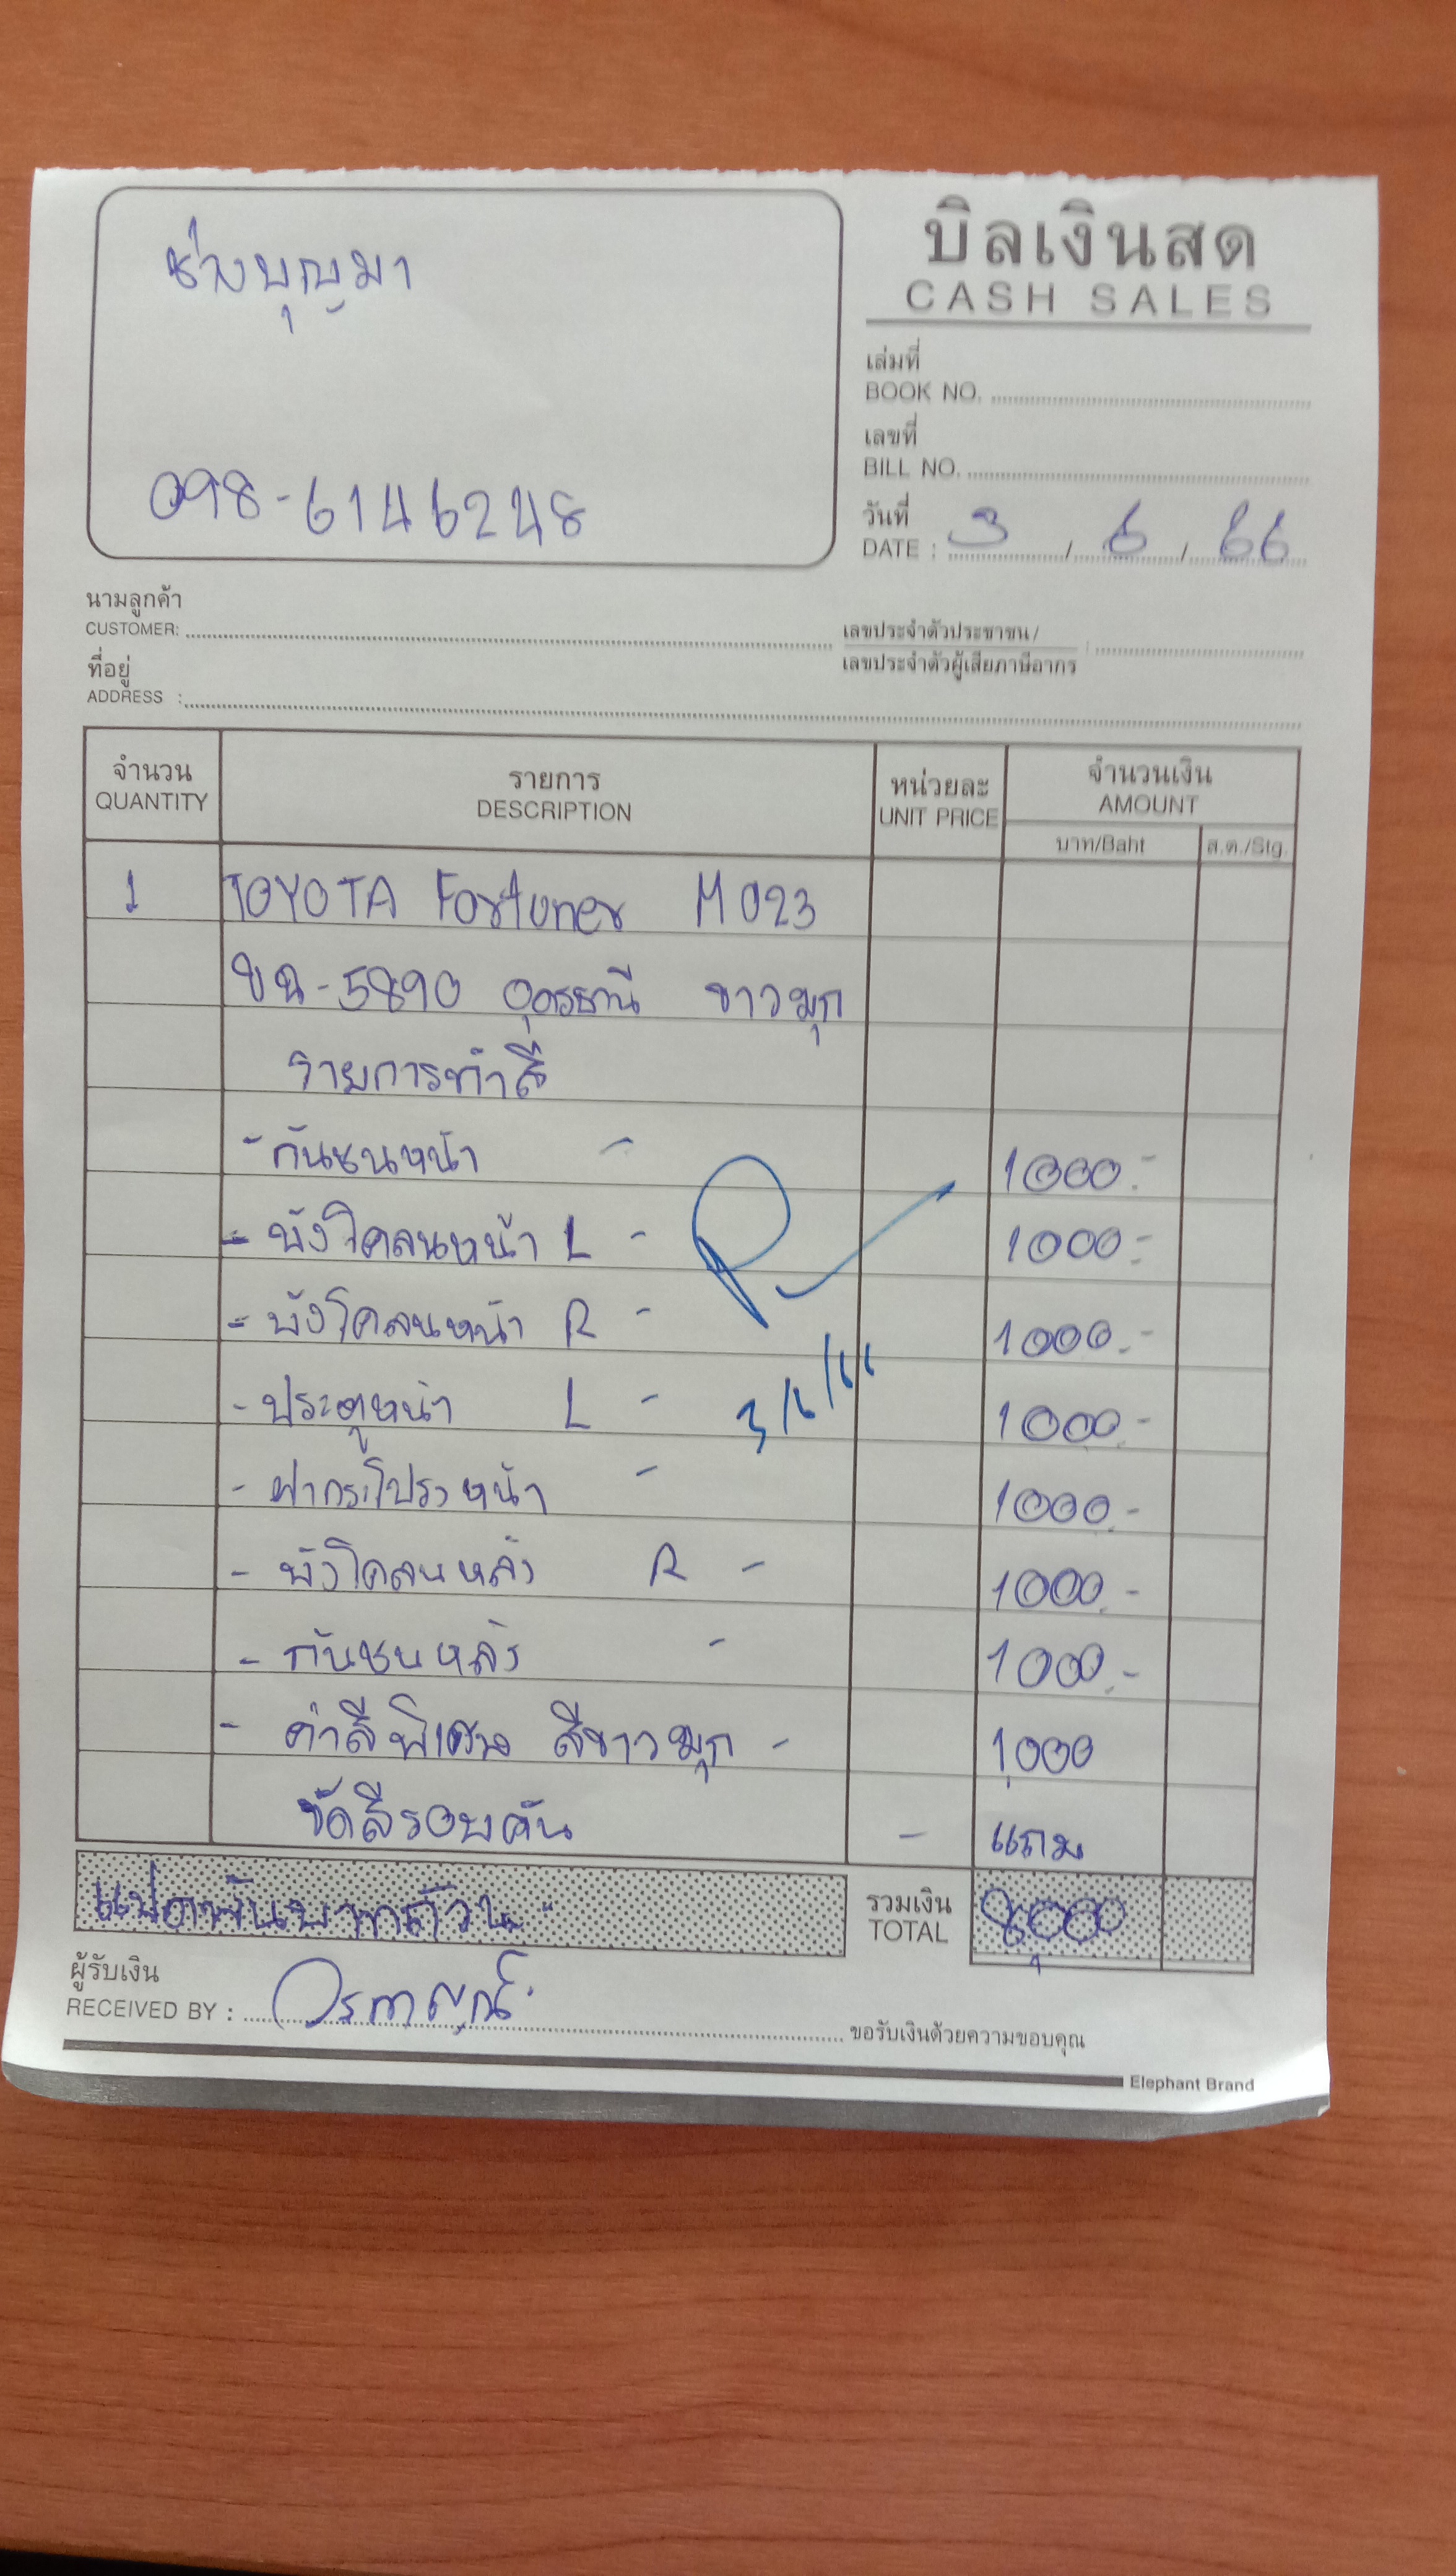 ช่างบุญมา
098-6146248
บิลเงินสด
CASH SALES
เล่มที่
BOOK NO.
เลขที่
BILL NO.
วันที่
DATE : 3 / 6 / 66
นามลูกค้า
CUSTOMER:
เลขประจำตัวประชาชน /
เลขประจำตัวผู้เสียภาษีอากร
ที่อยู่
ADDRESS :
จำนวน รายการ หน่วยละ จำนวนเงิน
QUANTITY DESCRIPTION UNIT PRICE AMOUNT
บาท/Baht ส.ต./Stg.
1 TOYOTA Fortuner M023
ขฉ-5890 อุดรธานี ขาวมุก
รายการทำสี
- กันชนหน้า - 1000.-
- บังโคลนหน้า L - 1000.-
- บังโคลนหน้า R - 1000.-
- ประตูหน้า L - 1000.-
3/6/66
- ฝากระโปรงหน้า - 1000.-
- บังโคลนหลัง R - 1000.-
- กันชนหลัง - 1000.-
- ค่าสีพิเศษ สีขาวมุก - 1,000
ขัดสีรอบคัน - แถม
แปดพันบาทถ้วน
รวมเงิน
TOTAL 8,000
ผู้รับเงิน
RECEIVED BY :
ขอรับเงินด้วยความขอบคุณ
Elephant Brand